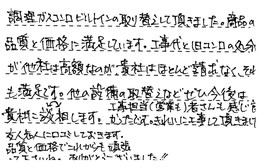 調理ガスコンロビルトインの取り替えして頂きました。商品の
品質と価格に満足しています。工事代と旧コンロの処分
が他社は高額なのが貴社はほとんど請求なく、それ
も満足です。他の設備の取替などぜひ今後は
貴社に依頼します。工事担当(営業も)者さんも感じ
かったです。きれいに工事して頂きまし
友人知人に口コミしておきます。
品質と価格でこれからも頑張
って下さいね。ありがとうございました!!